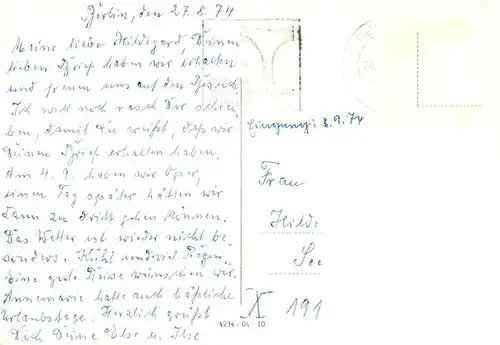 Berlin, den 27.8.74
Meine liebe Hildegard, Deinen
lieben Brief haben wir erhalten
und freuen uns auf den Besuch.
Ich will noch rasch Dir schrei-
ben, damit Du weißt, daß wir
Deinen Brief erhalten haben.
Am 4.9. haben wir Oper,
einen Tag später hätten wir
dann zu dritt gehen können.
Das Wetter ist wieder nicht be-
sonders. Kühl und viel Regen.
Eine gute Reise wünschen wir.
Annemarie hatte auch häßliche
Urlaubstage. Herzlich grüßt
Dich Deine Else u. Ilse
Eingang: 3.9.74
Frau
Hilde
See
X 191
4234 - 04 10